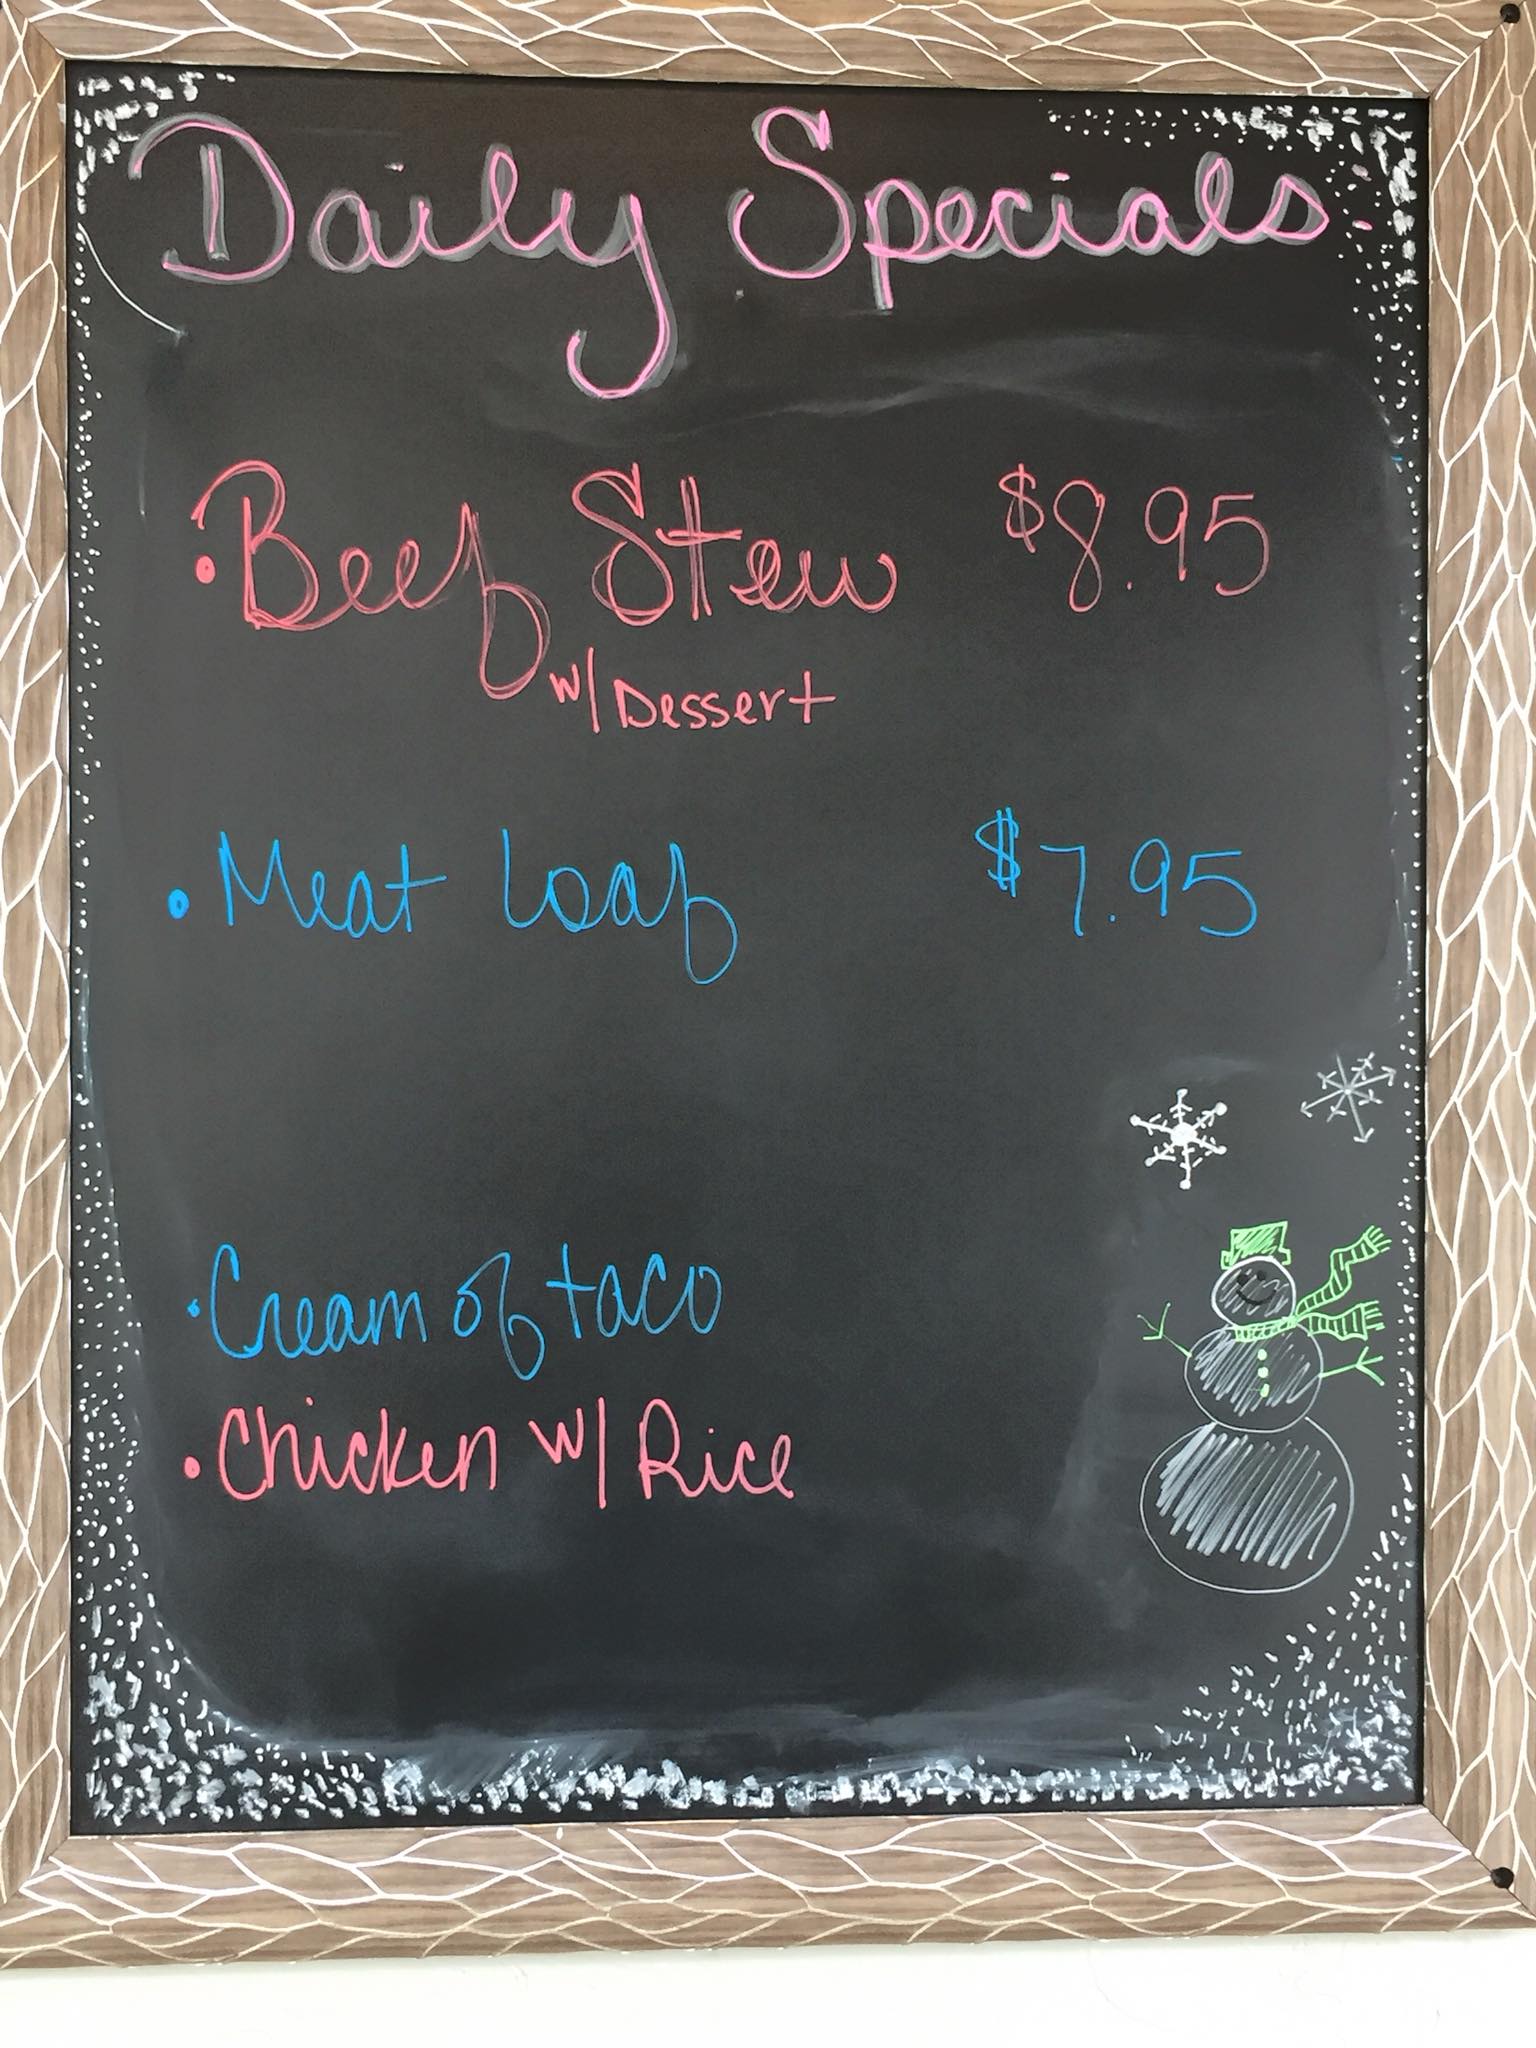 Daily Specials
• Beef Stew $8.95
w/ Dessert
• Meat Loaf $7.95
• Cream of taco
• Chicken w/ Rice